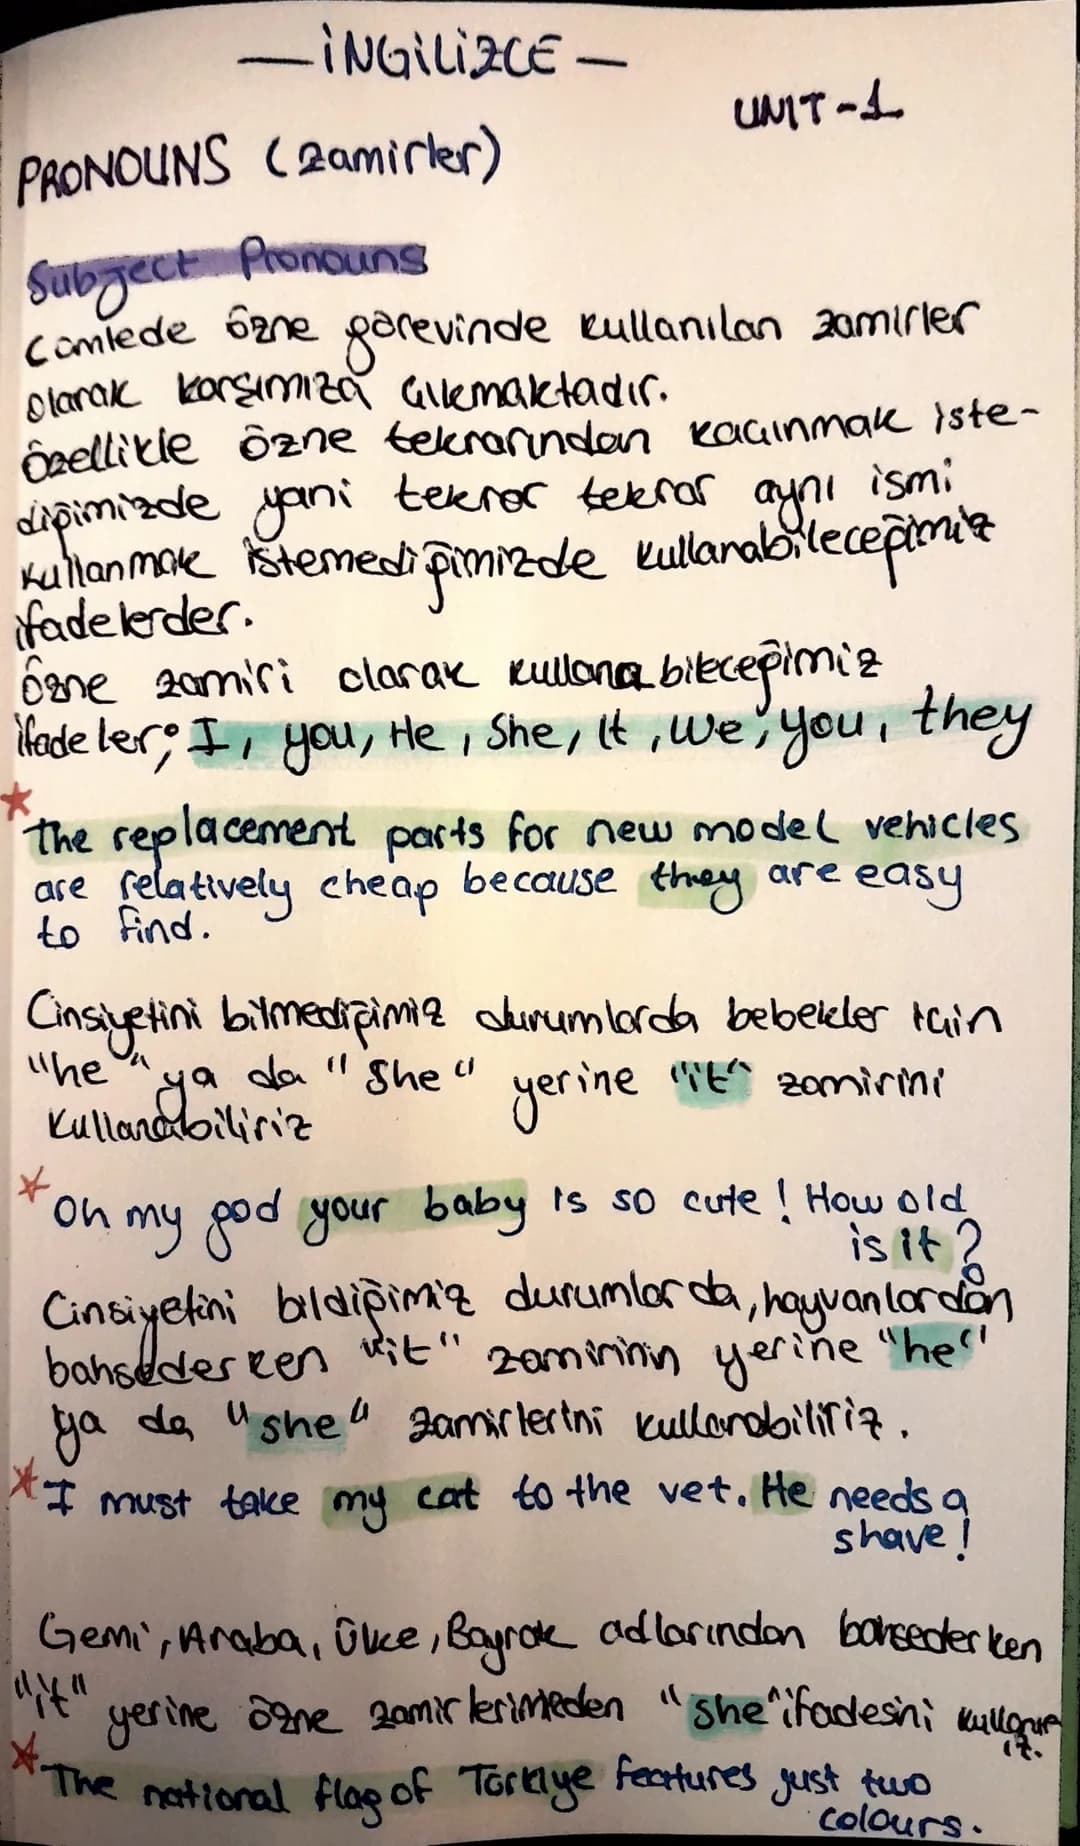 — İNGİLİZCE —
UNIT-1
PRONOUNS (Zamirler)
Subject Pronouns
Cümlede özne görevinde kullanılan zamirler
olarak karşımıza çıkmaktadır.
Özellikle özne tekrarından kaçınmak iste-
diğimizde yani tekrar tekrar aynı ismi
kullanmak istemediğimizde kullanabileceğimiz
ifadelerder.
Özne zamiri olarak kullanabileceğimiz
ifadeler; I, you, He, She, It, We, you, they
* The replacement parts for new model vehicles
are relatively cheap because they are easy
to find.
Cinsiyetini bilmediğimiz durumlarda bebekler için
"he" ya da "She" yerine "it" zamirini
Kullanabiliriz
* Oh my god your baby is so cute! How old
is it?
Cinsiyetini bildiğimiz durumlarda, hayvanlardan
bahsederken "it" zamirinin yerine "he"
ya da "she" zamirlerini kullanabiliriz.
* I must take my cat to the vet. He needs a
shave!
Gemi, Araba, Ülke, Bayrak adlarından bahsederken
"it" yerine özne zamirlerimizden "she" ifadesini kullanır
ız.
* The national flag of Türkiye features just two
colours.